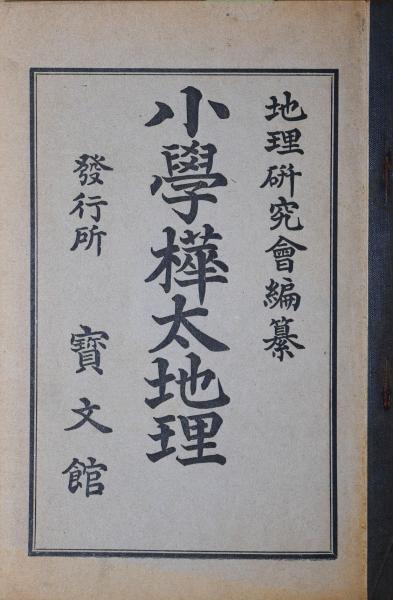 地理硏究會編纂
小學樺太地理
發行所 寳文館